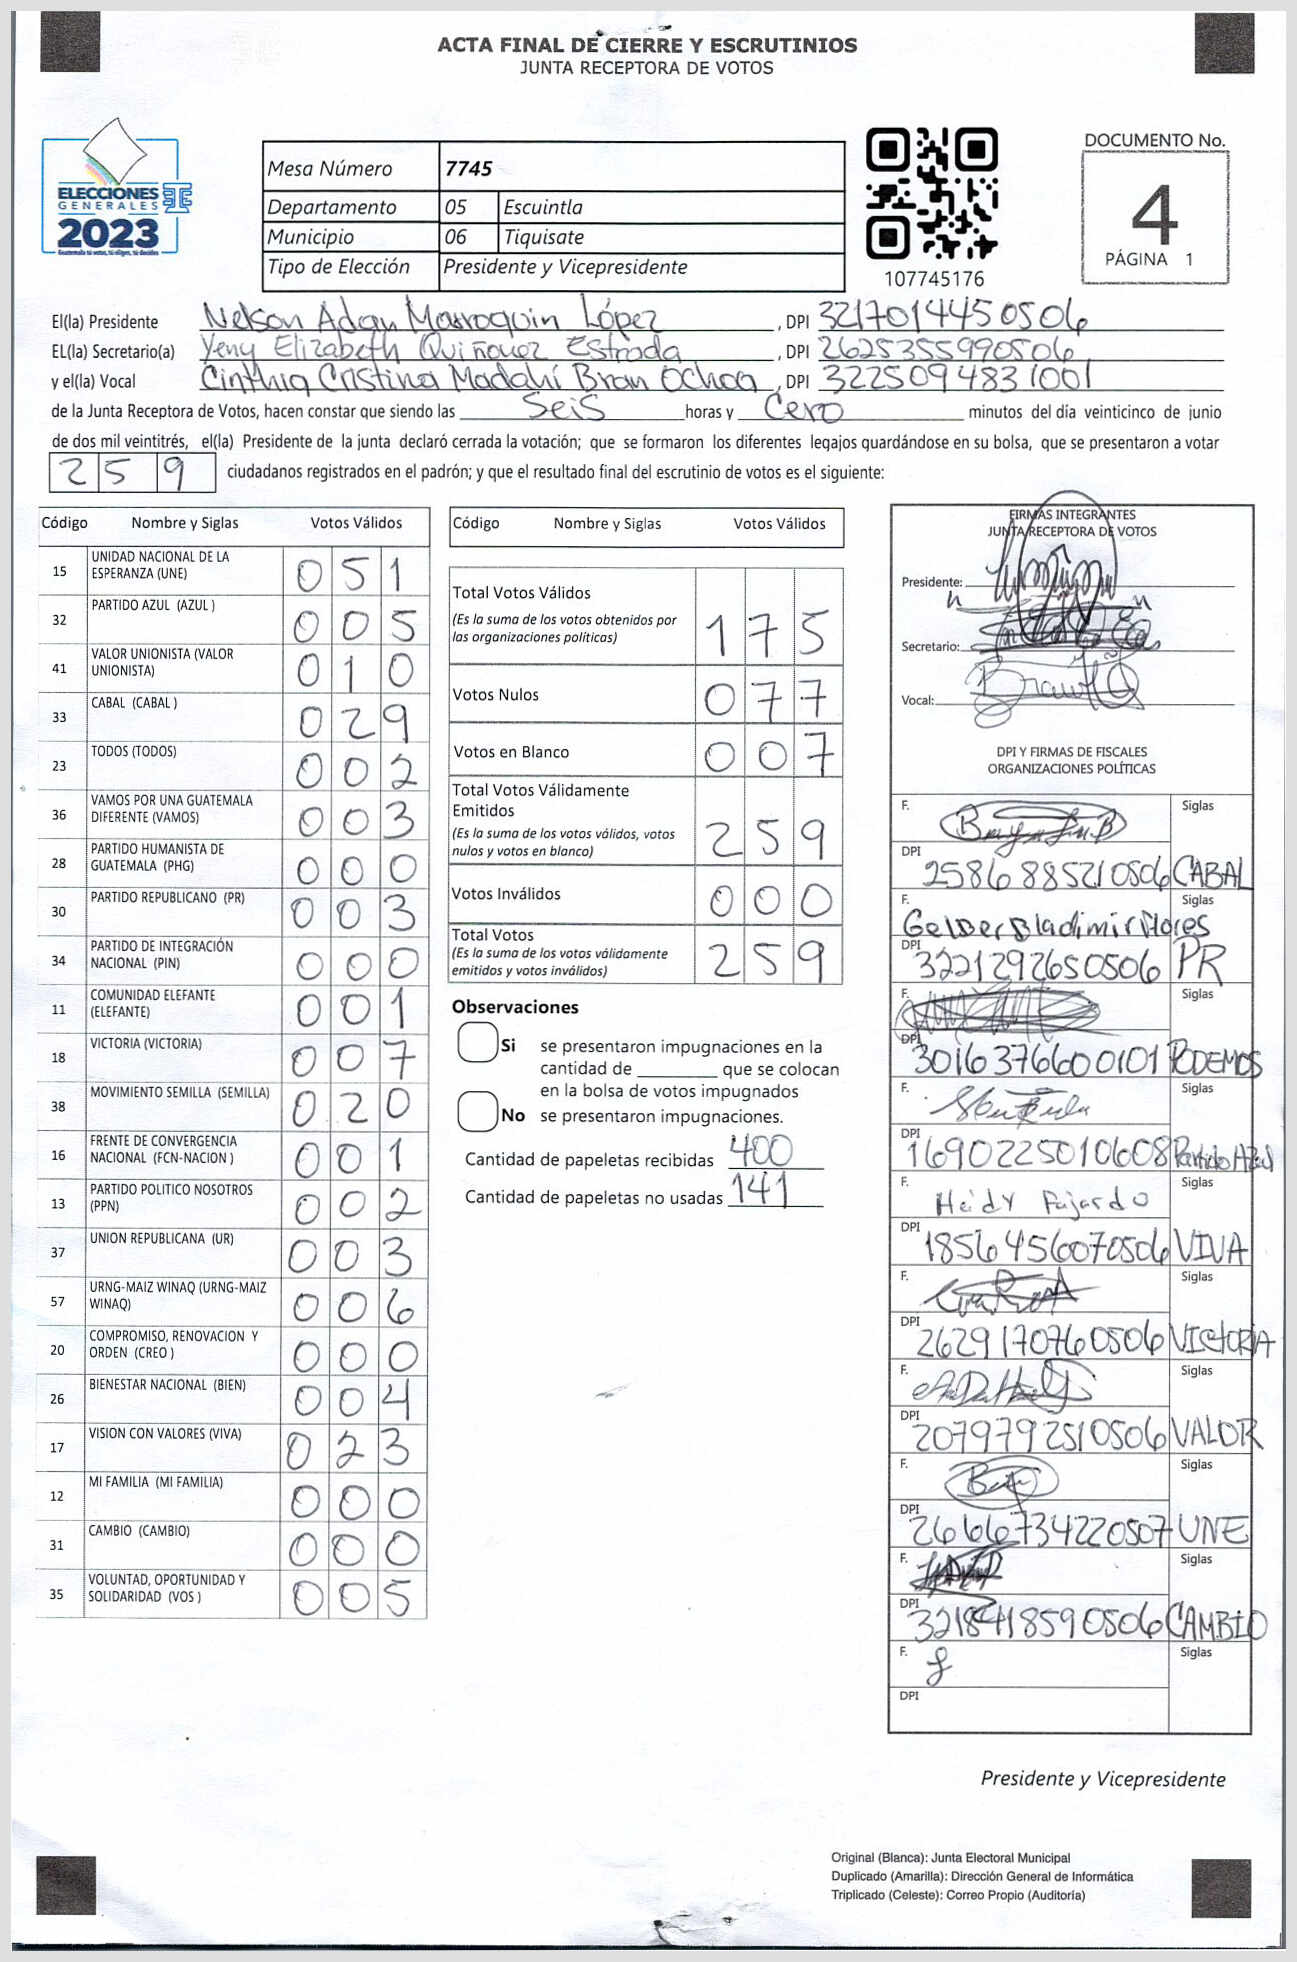 ACTA FINAL DE CIERRE Y ESCRUTINIOS
JUNTA RECEPTORA DE VOTOS
ELECCIONES
GENERALES
2023
Guatemala tú votas, tú eliges, tú decides
Mesa Número 7745
Departamento 05 Escuintla
Municipio 06 Tiquisate
Tipo de Elección Presidente y Vicepresidente
107745176
DOCUMENTO No.
4
PÁGINA 1
El(la) Presidente Nelson Adan Marroquin López , DPI 3217014450506
EL(la) Secretario(a) Yeny Elizabeth Quiñonez Estrada , DPI 2625355990506
y el(la) Vocal Cinthia Cristina Madahí Bran Ochoa , DPI 3225094831001
de la Junta Receptora de Votos, hacen constar que siendo las Seis horas y Cero minutos del día veinticinco de junio
de dos mil veintitrés, el(la) Presidente de la junta declaró cerrada la votación; que se formaron los diferentes legajos guardándose en su bolsa, que se presentaron a votar
259 ciudadanos registrados en el padrón; y que el resultado final del escrutinio de votos es el siguiente:
Código Nombre y Siglas Votos Válidos
15 UNIDAD NACIONAL DE LA ESPERANZA (UNE) 051
32 PARTIDO AZUL (AZUL ) 005
41 VALOR UNIONISTA (VALOR UNIONISTA) 010
33 CABAL (CABAL ) 029
23 TODOS (TODOS) 002
36 VAMOS POR UNA GUATEMALA DIFERENTE (VAMOS) 003
28 PARTIDO HUMANISTA DE GUATEMALA (PHG) 000
30 PARTIDO REPUBLICANO (PR) 003
34 PARTIDO DE INTEGRACIÓN NACIONAL (PIN) 000
11 COMUNIDAD ELEFANTE (ELEFANTE) 001
18 VICTORIA (VICTORIA) 007
38 MOVIMIENTO SEMILLA (SEMILLA) 020
16 FRENTE DE CONVERGENCIA NACIONAL (FCN-NACION ) 001
13 PARTIDO POLITICO NOSOTROS (PPN) 002
37 UNION REPUBLICANA (UR) 003
57 URNG-MAIZ WINAQ (URNG-MAIZ WINAQ) 006
20 COMPROMISO, RENOVACION Y ORDEN (CREO ) 000
26 BIENESTAR NACIONAL (BIEN) 004
17 VISION CON VALORES (VIVA) 023
12 MI FAMILIA (MI FAMILIA) 000
31 CAMBIO (CAMBIO) 000
35 VOLUNTAD, OPORTUNIDAD Y SOLIDARIDAD (VOS ) 005
Código Nombre y Siglas Votos Válidos
Total Votos Válidos
(Es la suma de los votos obtenidos por las organizaciones políticas) 175
Votos Nulos 077
Votos en Blanco 007
Total Votos Válidamente Emitidos
(Es la suma de los votos válidos, votos nulos y votos en blanco) 259
Votos Inválidos 000
Total Votos
(Es la suma de los votos válidamente emitidos y votos inválidos) 259
Observaciones
Si se presentaron impugnaciones en la
cantidad de ________ que se colocan
en la bolsa de votos impugnados
No se presentaron impugnaciones.
Cantidad de papeletas recibidas 400
Cantidad de papeletas no usadas 141
FIRMAS INTEGRANTES
JUNTA RECEPTORA DE VOTOS
Presidente:
Secretario:
Vocal:
DPI Y FIRMAS DE FISCALES
ORGANIZACIONES POLÍTICAS
F. Siglas
DPI 2586885210506 CABAL
F. Gelber Bladimir Flores Siglas
DPI 3221292650506 PR
F. Siglas
DPI 3016376600101 PODEMOS
F. Siglas
DPI 1690225010608 Partido Azul
F. Heidy Fajardo Siglas
DPI 1856456070506 VIVA
F. Siglas
DPI 2629170760506 VICTORIA
F. Siglas
DPI 2079792510506 VALOR
F. Siglas
DPI 2666734220507 UNE
F. Siglas
DPI 3218418590506 CAMBIO
F. Siglas
DPI
Presidente y Vicepresidente
Original (Blanca): Junta Electoral Municipal
Duplicado (Amarilla): Dirección General de Informática
Triplicado (Celeste): Correo Propio (Auditoría)